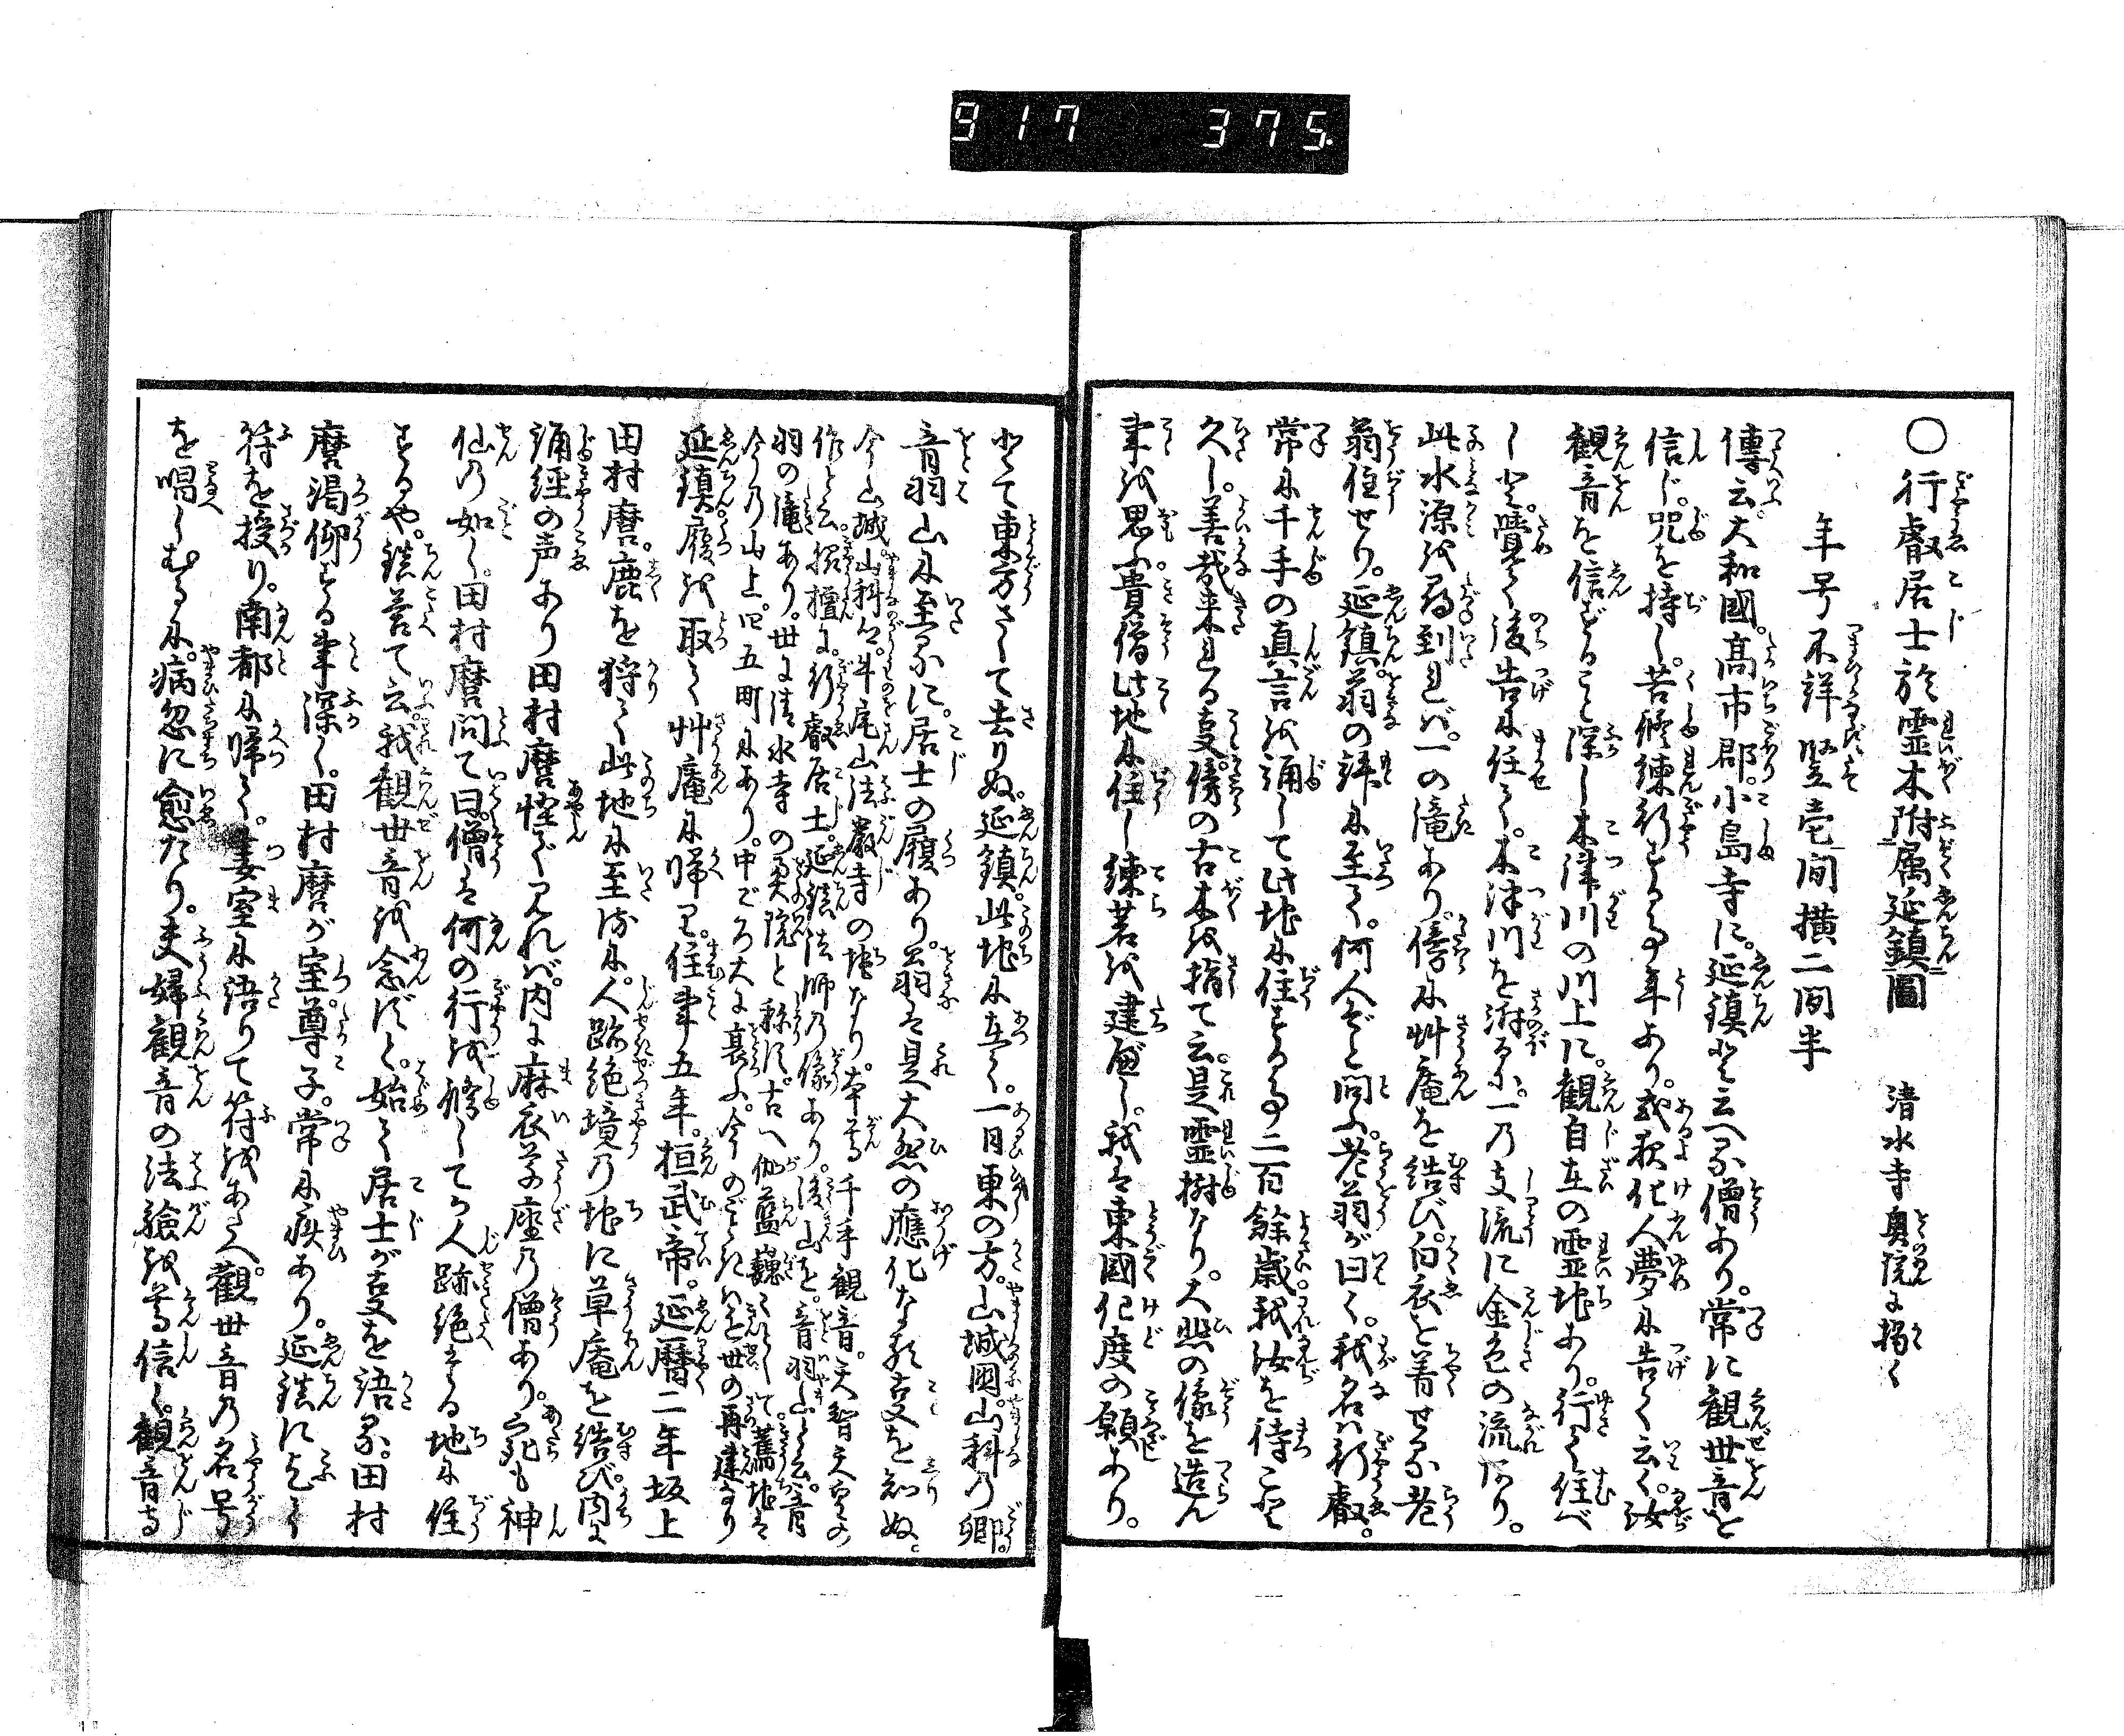 917 375
○行叡居士於霊木附属延鎮圖 清水寺奥院に掲く
年号不詳竪壱間横二間半
傳云大和國高市郡小島寺に延鎮と云へる僧あり常に観世音を
信じ咒を持し苦修練行する事年あり或夜化人夢に告て云く汝
観音を信ずること深し木津川の川上に観自在の霊地あり行て住べ
しと覺て後告に任て木津川を泝るに一の支流に金色の流れあり
此水源を尋到れば一の滝あり傍に艸庵を結び白衣を著せる老
翁住せり延鎮翁の辞に至て何人ぞと問ふ老翁が曰く我名ハ行叡
常に千手の真言を誦して此地に住する事二百餘歳我汝を待こと
久し善哉来れる事傍の古木を指て云是霊樹なり大悲の像を造ん
事を思ふ貴僧此地に住し練若を建べし我は東國化度の願あり
とて東方さして去りぬ延鎮此地に在て一日東の方山城國山科の郷
音羽山に至るに居士の履あり翁は是大悲の應化なる事を知ぬ
今山城山科の牛尾山法嚴寺の地なり本尊千手観音天智天皇の
作と云 行叡居士延鎮法師の像あり後山を音羽山と云音
羽の滝あり世に清水寺の奥院と称す古へ伽藍巍々として舊地は
今の山上四五町にあり中ごろ大に衰ふ今のごときハ近世の再建なり
延鎮履を取て艸庵に帰り住事五年桓武帝延暦二年坂上
田村麿鹿を狩て此地に至るに人跡絶境の地に草庵を結び内に
誦経の声あり田村麿怪で見れば内に麻衣草座の僧あり宛も神
仙の如し田村麿問て曰僧は何の行を修してか人跡絶たる地に住
するや鎮答て云我観世音を念ずと始て居士が事を語る田村
麿渇仰する事深し田村麿が室尊子常に疾あり延鎮に乞て
符を授り南都に帰て妻室に語りて符をあたへ観世音の名号
を唱しむるに病忽に愈たり夫婦観音の法驗を尊信し観音寺